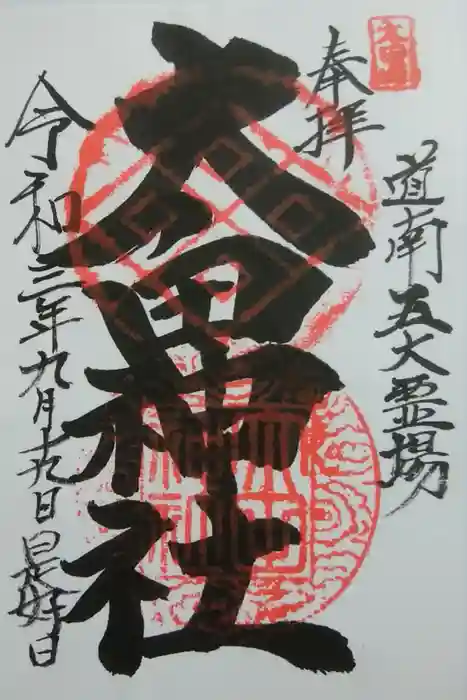 道南五大霊場
奉拝
太田神社
令和三年九月十九日是好日